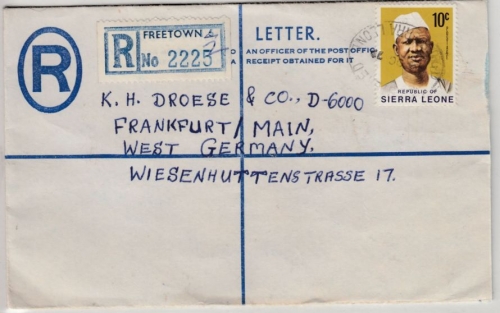 FREETOWN
R No 2225
R
LETTER.
AN OFFICER OF THE POST OFFIC
A RECEIPT OBTAINED FOR IT
10c
REPUBLIC OF
SIERRA LEONE
K. H. DROESE & CO., D-6000
FRANKFURT/MAIN,
WEST GERMANY.
WIESENHUTTENSTRASSE 17.